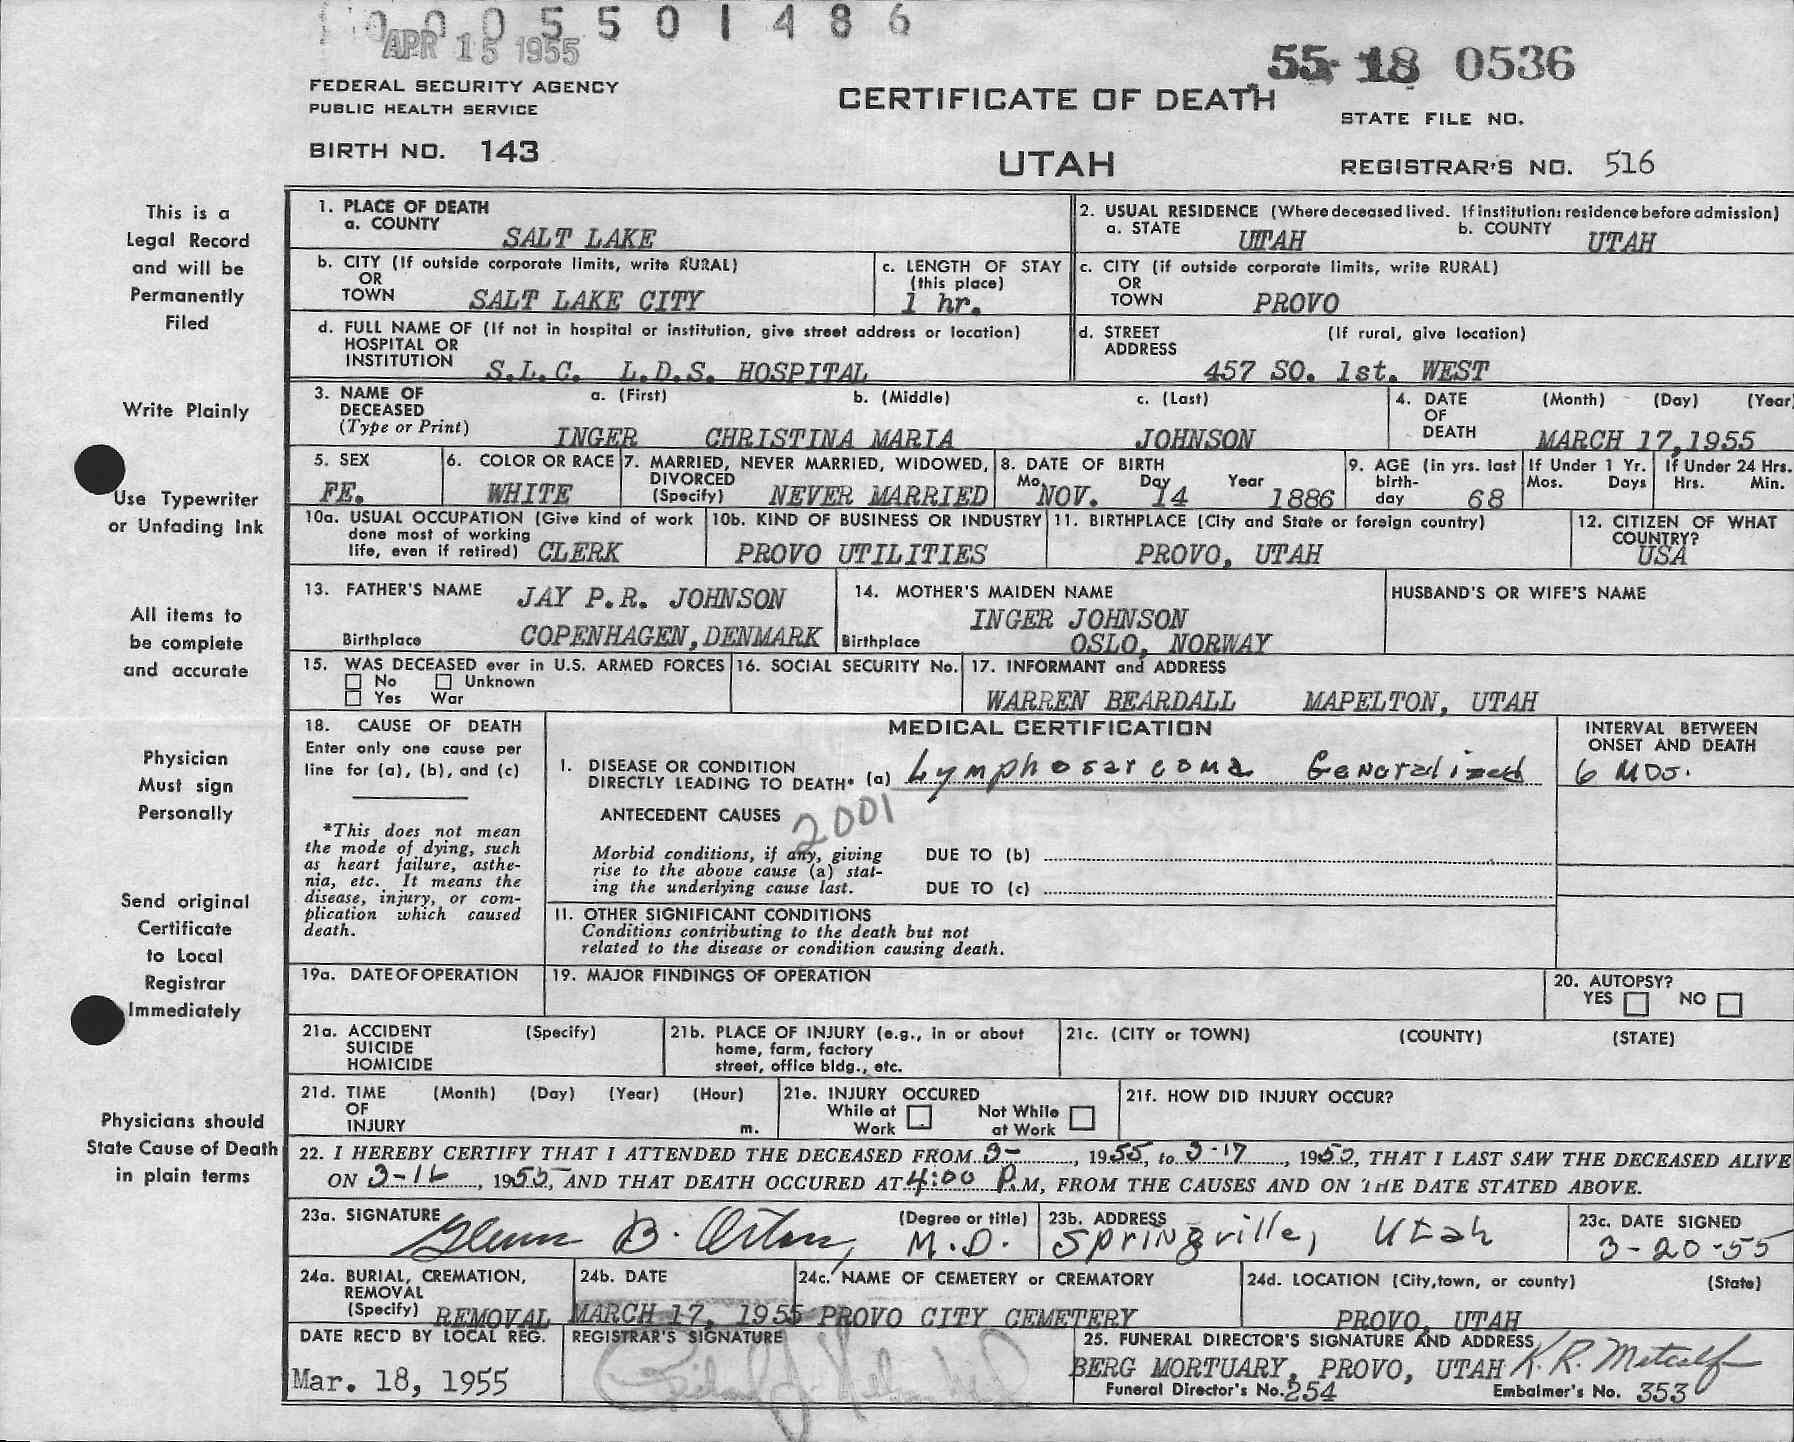 0 0 0 5 5 0 1 4 8 6
APR 15 1955
55- 18 0536
FEDERAL SECURITY AGENCY
PUBLIC HEALTH SERVICE
CERTIFICATE OF DEATH
STATE FILE NO.
BIRTH NO. 143
UTAH
REGISTRAR'S NO. 516
This is a
Legal Record
and will be
Permanently
Filed
Write Plainly
Use Typewriter
or Unfading Ink
All items to
be complete
and accurate
Physician
Must sign
Personally
Send original
Certificate
to Local
Registrar
Immediately
Physicians should
State Cause of Death
in plain terms
1. PLACE OF DEATH
a. COUNTY
SALT LAKE
2. USUAL RESIDENCE (Where deceased lived. If institution: residence before admission)
a. STATE UTAH b. COUNTY UTAH
b. CITY (If outside corporate limits, write RURAL)
OR
TOWN SALT LAKE CITY
c. LENGTH OF STAY
(this place)
1 hr.
c. CITY (if outside corporate limits, write RURAL)
OR
TOWN PROVO
d. FULL NAME OF (If not in hospital or institution, give street address or location)
HOSPITAL OR
INSTITUTION S.L.C. L.D.S. HOSPITAL
d. STREET (If rural, give location)
ADDRESS
457 SO. 1st. WEST
3. NAME OF a. (First) b. (Middle) c. (Last)
DECEASED
(Type or Print)
INGER CHRISTINA MARIA JOHNSON
4. DATE (Month) (Day) (Year)
OF
DEATH MARCH 17, 1955
5. SEX
FE.
6. COLOR OR RACE
WHITE
7. MARRIED, NEVER MARRIED, WIDOWED,
DIVORCED
(Specify) NEVER MARRIED
8. DATE OF BIRTH
Mo. Day Year
NOV. 14 1886
9. AGE (in yrs. last
birth-
day 68
If Under 1 Yr.
Mos. Days
If Under 24 Hrs.
Hrs. Min.
10a. USUAL OCCUPATION (Give kind of work
done most of working
life, even if retired) CLERK
10b. KIND OF BUSINESS OR INDUSTRY
PROVO UTILITIES
11. BIRTHPLACE (City and State or foreign country)
PROVO, UTAH
12. CITIZEN OF WHAT
COUNTRY?
USA
13. FATHER'S NAME JAY P.R. JOHNSON
Birthplace COPENHAGEN, DENMARK
14. MOTHER'S MAIDEN NAME
INGER JOHNSON
Birthplace OSLO, NORWAY
HUSBAND'S OR WIFE'S NAME
15. WAS DECEASED ever in U.S. ARMED FORCES
No Unknown
Yes War
16. SOCIAL SECURITY No.
17. INFORMANT and ADDRESS
WARREN BEARDALL MAPELTON, UTAH
18. CAUSE OF DEATH
Enter only one cause per
line for (a), (b), and (c)
*This does not mean
the mode of dying, such
as heart failure, asthe-
nia, etc. It means the
disease, injury, or com-
plication which caused
death.
MEDICAL CERTIFICATION
INTERVAL BETWEEN
ONSET AND DEATH
I. DISEASE OR CONDITION
DIRECTLY LEADING TO DEATH* (a) Lymphosarcoma Generalized 6 Mos.
ANTECEDENT CAUSES
2001
Morbid conditions, if any, giving
rise to the above cause (a) stat-
ing the underlying cause last.
DUE TO (b)
DUE TO (c)
11. OTHER SIGNIFICANT CONDITIONS
Conditions contributing to the death but not
related to the disease or condition causing death.
19a. DATE OF OPERATION
19. MAJOR FINDINGS OF OPERATION
20. AUTOPSY?
YES NO
21a. ACCIDENT (Specify)
SUICIDE
HOMICIDE
21b. PLACE OF INJURY (e.g., in or about
home, farm, factory
street, office bldg., etc.
21c. (CITY or TOWN) (COUNTY) (STATE)
21d. TIME (Month) (Day) (Year) (Hour)
OF
INJURY m.
21e. INJURY OCCURED
While at Work
Not While at Work
21f. HOW DID INJURY OCCUR?
22. I HEREBY CERTIFY THAT I ATTENDED THE DECEASED FROM 9- , 1955, to 3-17 , 1955, THAT I LAST SAW THE DECEASED ALIVE
ON 3-16 , 1955, AND THAT DEATH OCCURED AT 4:00 P.M, FROM THE CAUSES AND ON THE DATE STATED ABOVE.
23a. SIGNATURE (Degree or title)
Glenn B. Orton, M.D.
23b. ADDRESS
Springville, Utah
23c. DATE SIGNED
3-20-55
24a. BURIAL, CREMATION,
REMOVAL
(Specify) REMOVAL
24b. DATE
MARCH 17, 1955
24c. NAME OF CEMETERY or CREMATORY
PROVO CITY CEMETERY
24d. LOCATION (City, town, or county) (State)
PROVO, UTAH
DATE REC'D BY LOCAL REG.
Mar. 18, 1955
REGISTRAR'S SIGNATURE
25. FUNERAL DIRECTOR'S SIGNATURE AND ADDRESS
BERG MORTUARY, PROVO, UTAH K. R. Metcalf
Funeral Director's No. 254 Embalmer's No. 353